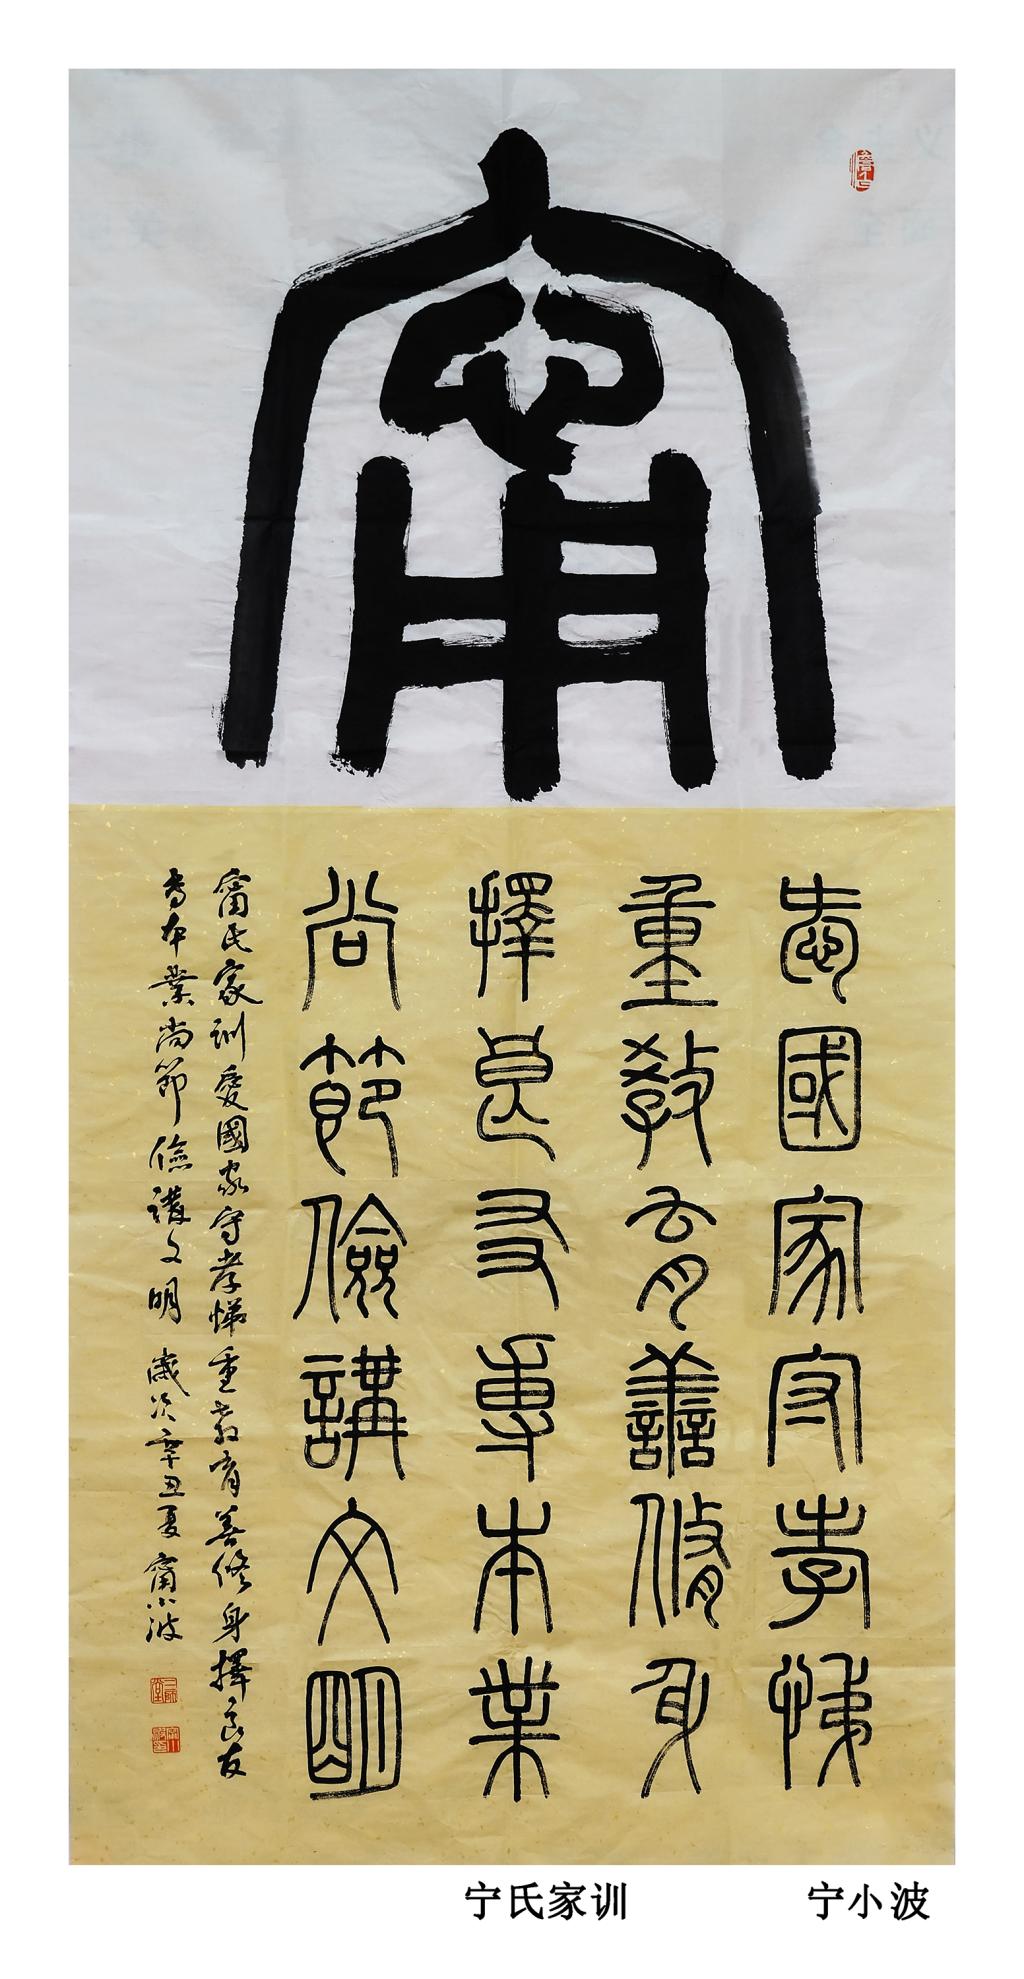 甯
愛國家守孝悌
重教育善修身
擇良友專本業
尚節儉講文明
甯氏家訓愛國家守孝悌重教育善修身擇良友
專本業尚節儉講文明 歲次辛丑夏 甯小波
宁氏家训 宁小波